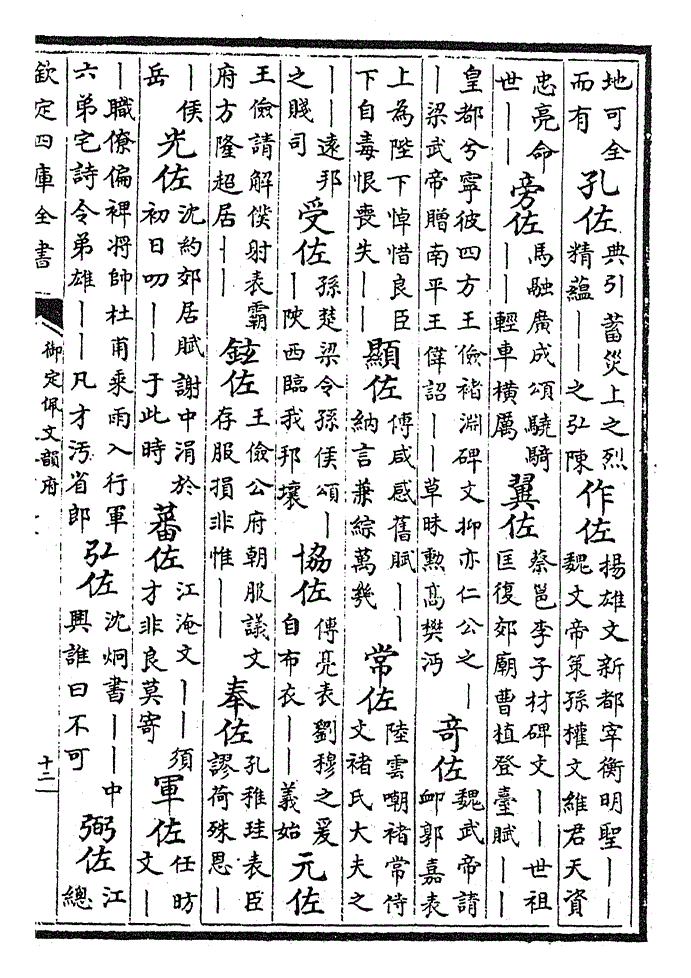 地可全而有孔佐典引蓄災上之烈精蘊――之弘陳作佐揚雄文新都宰衡明聖――魏文帝策孫權文維君天資
忠亮命世――旁佐馬融廣成頌驍騎――輕車橫厲翼佐蔡邕李子材碑文――世祖匡復郊廟曹植登臺賦――
皇都兮寧彼四方王儉褚淵碑文抑亦仁公之――梁武帝贈南平王偉詔――草昧勲高樊沔奇佐魏武帝請䘏郭嘉表
上為陛下悼惜良臣下自毒恨喪失――顯佐傅咸感舊賦――納言兼綜萬幾常佐陸雲嘲褚常侍文褚氏大夫之
――遠邦之賤司受佐孫楚梁令孫侯頌――陝西臨我邦壤協佐傅亮表劉穆之爰自布衣――義始元佐
王儉請解僕射表霸府方隆超居――鉉佐王儉公府朝服議文存服損非惟――奉佐孔稚珪表臣謬荷殊恩―
―侯岳光佐沈約郊居賦謝中涓於初日叨――于此時蕃佐江淹文――須才非良莫寄軍佐任昉文―
―職僚偏裨将帥杜甫乘雨入行軍六弟宅詩令弟雄――凡才汚省郎弘佐沈炯書――中興誰曰不可弼佐江總
欽定四庫全書
御定佩文韻府
十二